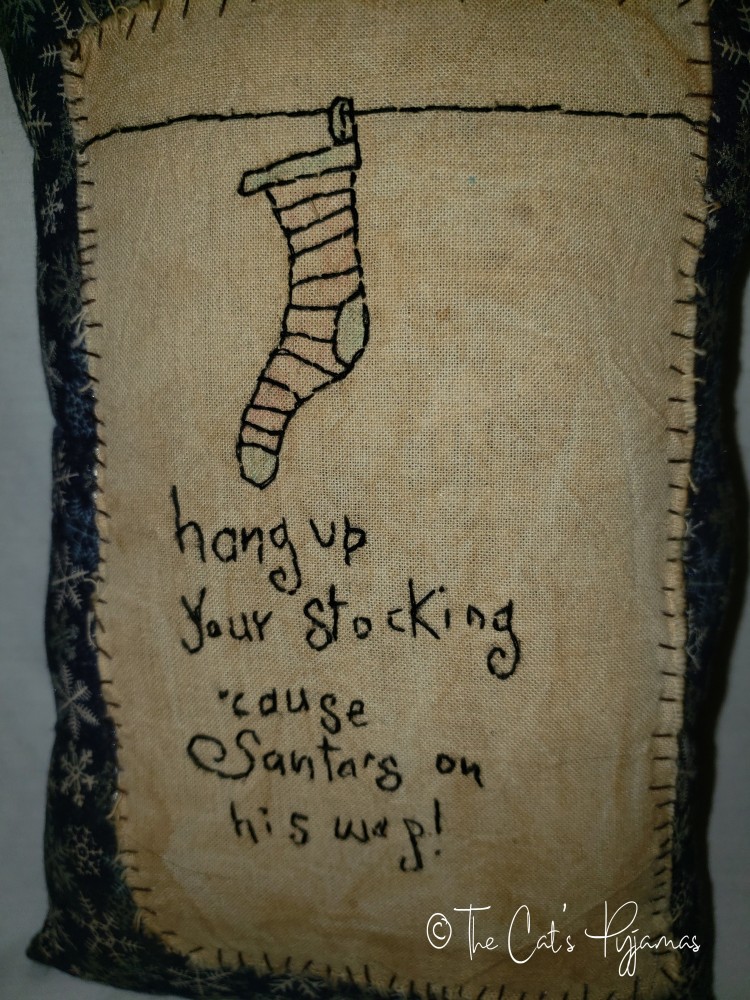 hang up
your stocking
'cause
Santa's on
his way!
© The Cat's Pyjamas